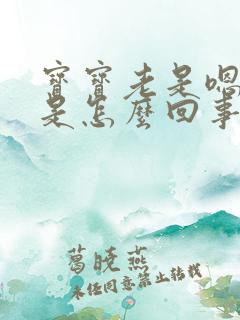 寶寶老是嗯
是怎麼回事
葛曉燕
未經同意禁止轉載